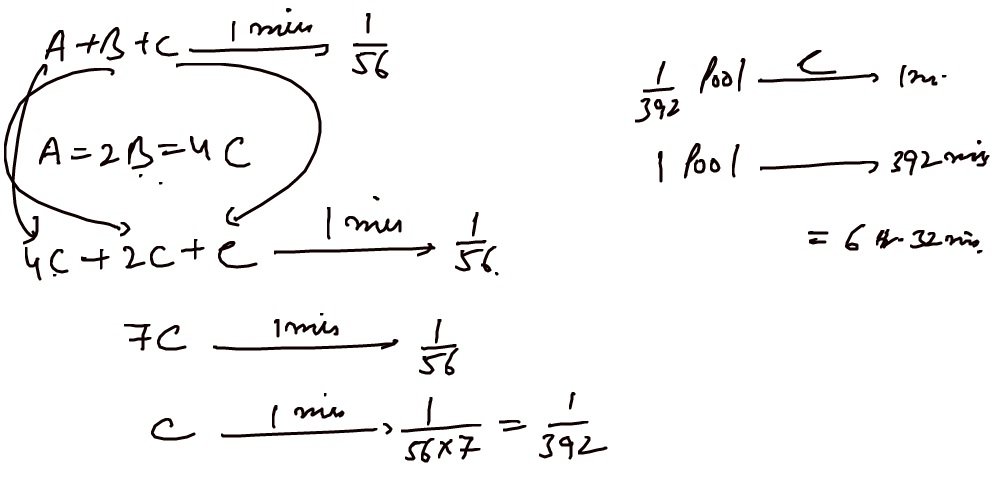 A+B+C 1 min 1/56
A=2B=4C
4C+2C+C 1 min 1/56.
7C 1min 1/56
C 1 min 1/56×7 = 1/392
1/392 Pool C 1m.
1 Pool 392 min
= 6 Hr. 32 min.